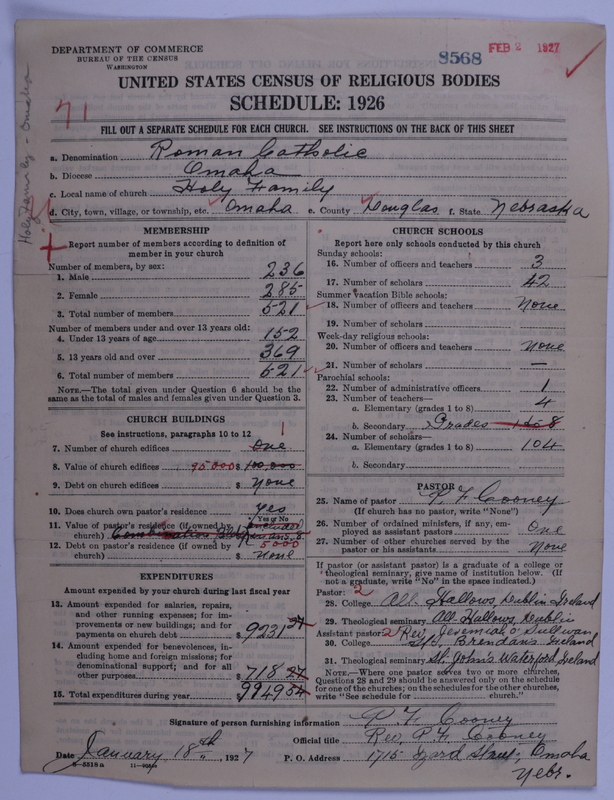 DEPARTMENT OF COMMERCE
BUREAU OF THE CENSUS
WASHINGTON
8568
FEB 2 1927
UNITED STATES CENSUS OF RELIGIOUS BODIES
SCHEDULE: 1926
71
FILL OUT A SEPARATE SCHEDULE FOR EACH CHURCH. SEE INSTRUCTIONS ON THE BACK OF THIS SHEET
Holy Family - Omaha
a. Denomination Roman Catholic
b. Diocese Omaha
c. Local name of church Holy Family
d. City, town, village, or township, etc. Omaha e. County Douglas f. State Nebraska
MEMBERSHIP
Report number of members according to definition of
member in your church
Number of members, by sex:
1. Male 236
2. Female 285
3. Total number of members 521
Number of members under and over 13 years old:
4. Under 13 years of age 152
5. 13 years old and over 369
6. Total number of members 521
NOTE.—The total given under Question 6 should be
same as the total of males and females given under Question 3.
CHURCH BUILDINGS
See instructions, paragraphs 10 to 12
7. Number of church edifices One 1
8. Value of church edifices 95.000 $ 100,000
9. Debt on church edifices $ None
10. Does church own pastor's residence yes
Yes or No
11. Value of pastor's residence (if owned by
church) Combination Bldg
5000
12. Debt on pastor's residence (if owned by
church) $ None
EXPENDITURES
Amount expended by your church during last fiscal year
13. Amount expended for salaries, repairs,
and other running expenses; for im-
provements or new buildings; and for
payments on church debt $ 9231
14. Amount expended for benevolences, in-
cluding home and foreign missions; for
denominational support; and for all
other purposes $ 718 27
15. Total expenditures during year $ 9949 54
CHURCH SCHOOLS
Report here only schools conducted by this church
Sunday schools:
16. Number of officers and teachers 3
17. Number of scholars 42
Summer vacation Bible schools:
18. Number of officers and teachers None
19. Number of scholars
Week-day religious schools:
20. Number of officers and teachers None
21. Number of scholars —
Parochial schools:
22. Number of administrative officers 1
23. Number of teachers—
a. Elementary (grades 1 to 8) 4
b. Secondary Grades 1 to 8
24. Number of scholars—
a. Elementary (grades 1 to 8) 104
b. Secondary
PASTOR
25. Name of pastor P. F. Cooney
(If church has no pastor, write "None")
26. Number of ordained ministers, if any, em-
ployed as assistant pastors One
27. Number of other churches served by the
pastor or his assistants None
If pastor (or assistant pastor) is a graduate of a college or
theological seminary, give name of institution below. (If
not a graduate, write "No" in the space indicated.)
Pastor: 2
28. College All Hallows, Dublin Ireland
29. Theological seminary All Hallows, Dublin
Assistant pastor: 2 Rev. Jeremiah O'Sullivan
30. College St. Brendan's Ireland
31. Theological seminary St. John's Waterford, Ireland
NOTE.—Where one pastor serves two or more churches,
Questions 28 and 29 should be answered only on the schedule
for one of the churches; on the schedules for the other churches,
write "See schedule for church."
Signature of person furnishing information P. F. Cooney
Official title Rev. P. F. Cooney
Date January 18th, 1927 P. O. Address 1715 Izard Street, Omaha
Nebr.
8—5518a